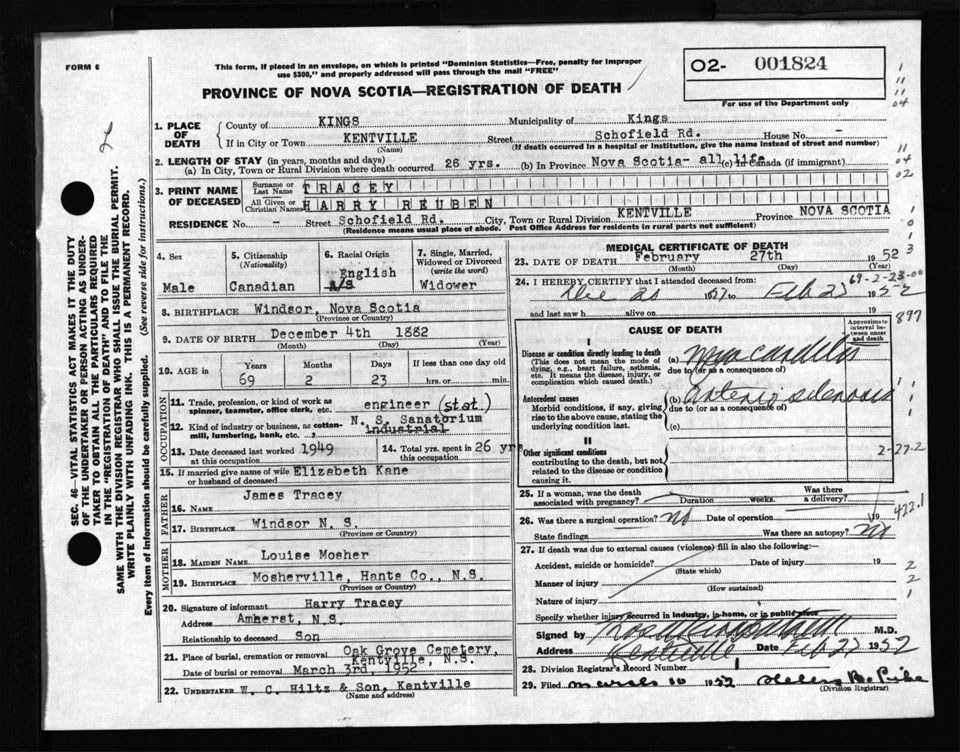 FORM 6
This form, if placed in an envelope, on which is printed "Dominion Statistics—Free, penalty for improper
use $300," and properly addressed will pass through the mail "FREE"
PROVINCE OF NOVA SCOTIA—REGISTRATION OF DEATH
O2- 001824
For use of the Department only
SEC. 46—VITAL STATISTICS ACT MAKES IT THE DUTY
OF THE UNDERTAKER OR PERSON ACTING AS UNDER-
TAKER TO OBTAIN ALL THE PARTICULARS REQUIRED
IN THE "REGISTRATION OF DEATH" AND TO FILE THE
SAME WITH THE DIVISION REGISTRAR WHO SHALL ISSUE THE BURIAL PERMIT.
WRITE PLAINLY WITH UNFADING INK. THIS IS A PERMANENT RECORD.
Every item of information should be carefully supplied. (See reverse side for instructions.)
1. PLACE OF DEATH
County of KINGS Municipality of Kings
If in City or Town KENTVILLE Street Schofield Rd. House No. -
(Name) (If death occurred in a hospital or institution, give the name instead of street and number)
2. LENGTH OF STAY (in years, months and days)
(a) In City, Town or Rural Division where death occurred 26 yrs. (b) In Province Nova Scotia- all life (c) In Canada (if immigrant)
3. PRINT NAME OF DECEASED
Surname or Last Name TRACEY
All Given or Christian Names HARRY REUBEN
RESIDENCE No. - Street Schofield Rd. City, Town or Rural Division KENTVILLE Province NOVA SCOTIA
(Residence means usual place of abode. Post Office Address for residents in rural parts not sufficient)
4. Sex
Male
5. Citizenship
(Nationality)
Canadian
6. Racial Origin
English
A/S
7. Single, Married,
Widowed or Divorced
(write the word)
Widower
8. BIRTHPLACE Windsor, Nova Scotia
(Province or Country)
9. DATE OF BIRTH December 4th 1882
(Month) (Day) (Year)
10. AGE in Years Months Days If less than one day old
69 2 23 hrs. or min.
OCCUPATION
11. Trade, profession, or kind of work as
spinner, teamster, office clerk, etc. engineer (stat.)
12. Kind of industry or business, as cotton-
mill, lumbering, bank, etc. N. S. Sanatorium
industrial
13. Date deceased last worked 1949
at this occupation
14. Total yrs. spent in 26 yrs
this occupation
15. If married give name of wife Elizabeth Kane
or husband of deceased
FATHER
16. Name James Tracey
17. BIRTHPLACE Windsor N. S.
(Province or Country)
MOTHER
18. MAIDEN NAME Louise Mosher
19. BIRTHPLACE Mosherville, Hants Co., N.S.
(Province or Country)
20. Signature of informant Harry Tracey
Address Amherst, N.S.
Relationship to deceased Son
21. Place of burial, cremation or removal Oak Grove Cemetery,
Kentville, N.S.
Date of burial or removal March 3rd, 1952
22. UNDERTAKER W. C. Hiltz & Son, Kentville
(Name and address)
MEDICAL CERTIFICATE OF DEATH
23. DATE OF DEATH February 27th 1952
(Month) (Day) (Year)
69-2-23-00
24. I HEREBY CERTIFY that I attended deceased from:
Feb 27 1952
and last saw h alive on 19
CAUSE OF DEATH
Approximate
interval be-
tween onset
and death
I
Disease or condition directly leading to death
(This does not mean the mode of
dying, e.g., heart failure, asthenia,
etc. It means the disease, injury, or
complication which caused death.)
(a) Myocarditis
due to (or as a consequence of)
Antecedent causes
Morbid conditions, if any, giving
rise to the above cause, stating the
underlying condition last.
(b) arterio sclerosis
due to (or as a consequence of)
(c)
II
Other significant conditions
contributing to the death, but not
related to the disease or condition
causing it.
2-27-2
25. If a woman, was the death
associated with pregnancy? Duration weeks. Was there
a delivery?
26. Was there a surgical operation? no Date of operation 19
State findings Was there an autopsy? no
422.1
27. If death was due to external causes (violence) fill in also the following:—
Accident, suicide or homicide? Date of injury 19
(State which)
Manner of injury
(How sustained)
Nature of injury
Specify whether injury occurred in industry, in home, or in public place
Signed by M.D.
Address Kentville Date Feb 27 1952
28. Division Registrar's Record Number
29. Filed March 10 1952 Helen B.
(Division Registrar)
897